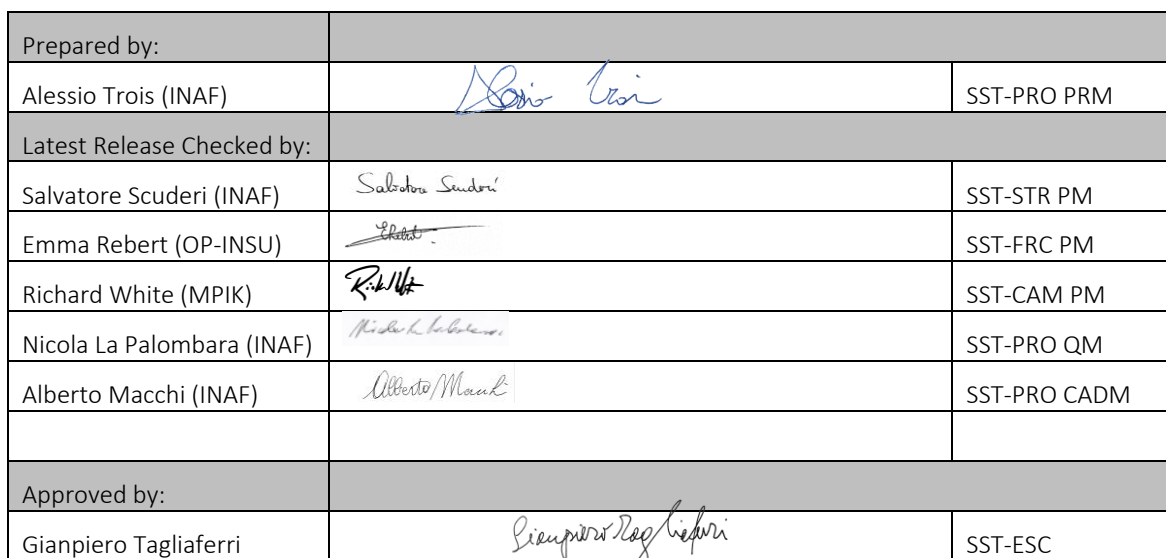 Prepared by:
Alessio Trois (INAF) Alessio Trois SST-PRO PRM
Latest Release Checked by:
Salvatore Scuderi (INAF) Salvatore Scuderi SST-STR PM
Emma Rebert (OP-INSU) SST-FRC PM
Richard White (MPIK) SST-CAM PM
Nicola La Palombara (INAF) SST-PRO QM
Alberto Macchi (INAF) Alberto Macchi SST-PRO CADM
Approved by:
Gianpiero Tagliaferri Gianpiero Tagliaferri SST-ESC